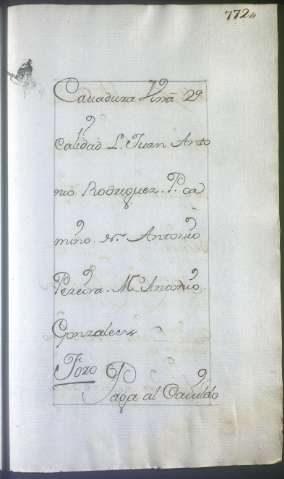 772
Cavadura Viña 2ª
Calidad L. Juan Anto
nio Rodriguez. P. ca
mino. N. Antonio
Pereira. M. Antonio
Gonzalez
Foro
Paga al Cavildo